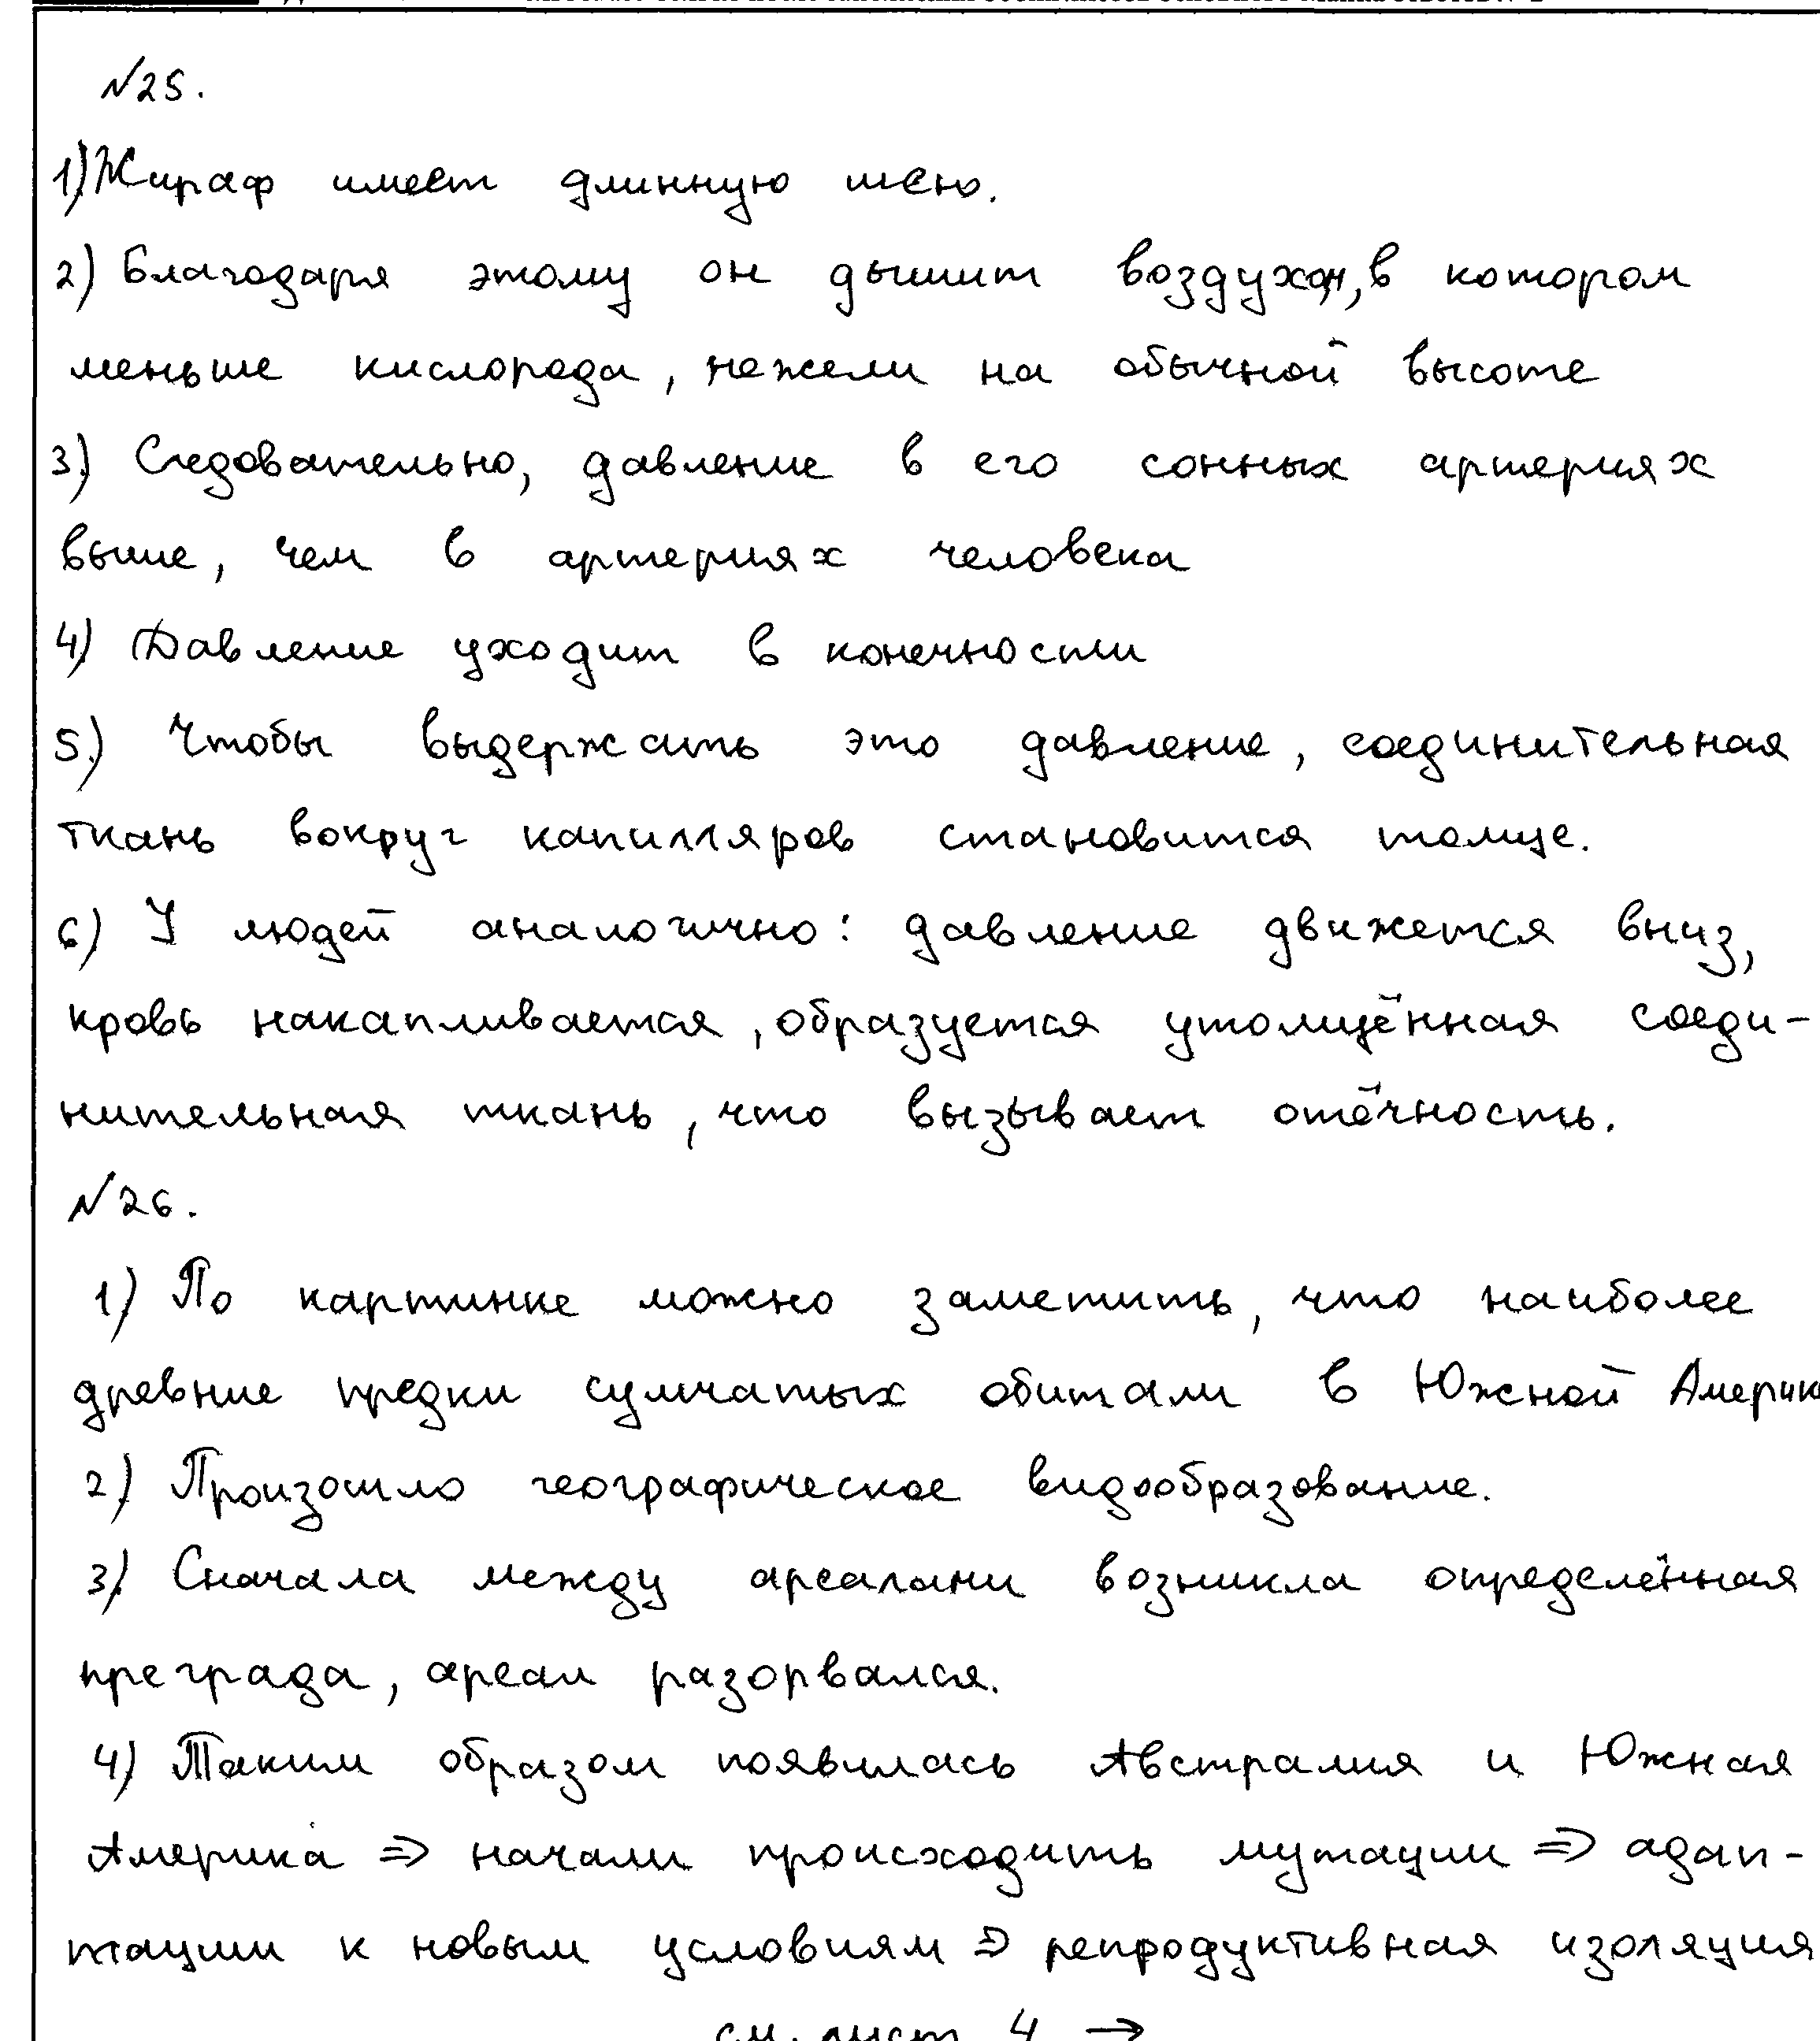 №25.
1) Жираф имеет длинную шею.
2) Благодаря этому он дышит воздухом, в котором
меньше кислорода, нежели на обычной высоте
3) Следовательно, давление в его сонных артериях
выше, чем в артериях человека
4) Давление уходит в конечности
5) Чтобы выдержать это давление, соединительная
ткань вокруг капилляров становится толще.
6) У людей аналогично: давление движется вниз,
кровь накапливается, образуется утолщённая соеди-
нительная ткань, что вызывает отёчность.
№26.
1) По картинке можно заметить, что наиболее
древние предки сумчатых обитали в Южной Америке
2) Произошло географическое видообразование.
3) Сначала между ареалами возникла определённая
преграда, ареал разорвался.
4) Таким образом появилась Австралия и Южная
Америка => начали происходить мутации => адап-
тации к новым условиям => репродуктивная изоляция
см. лист 4 →